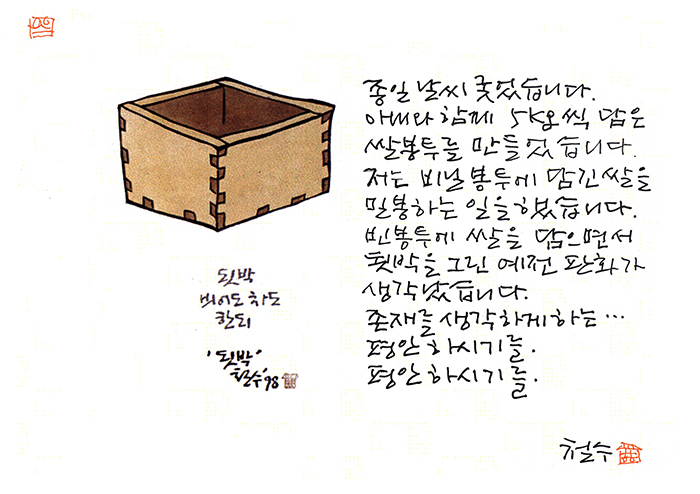 종일 날씨 궂었습니다.
아내와 함께 5kg씩 담은
쌀봉투를 만들었습니다.
저는 비닐봉투에 담긴쌀을
밀봉하는 일을했습니다.
빈봉투에 쌀을 담으면서
됫박을 그린 예전 판화가
생각났습니다.
존재를 생각하게하는…
평안하시기를.
평안하시기를.
철수
됫박
비어도 차도
한되
'됫박'
철수 '98